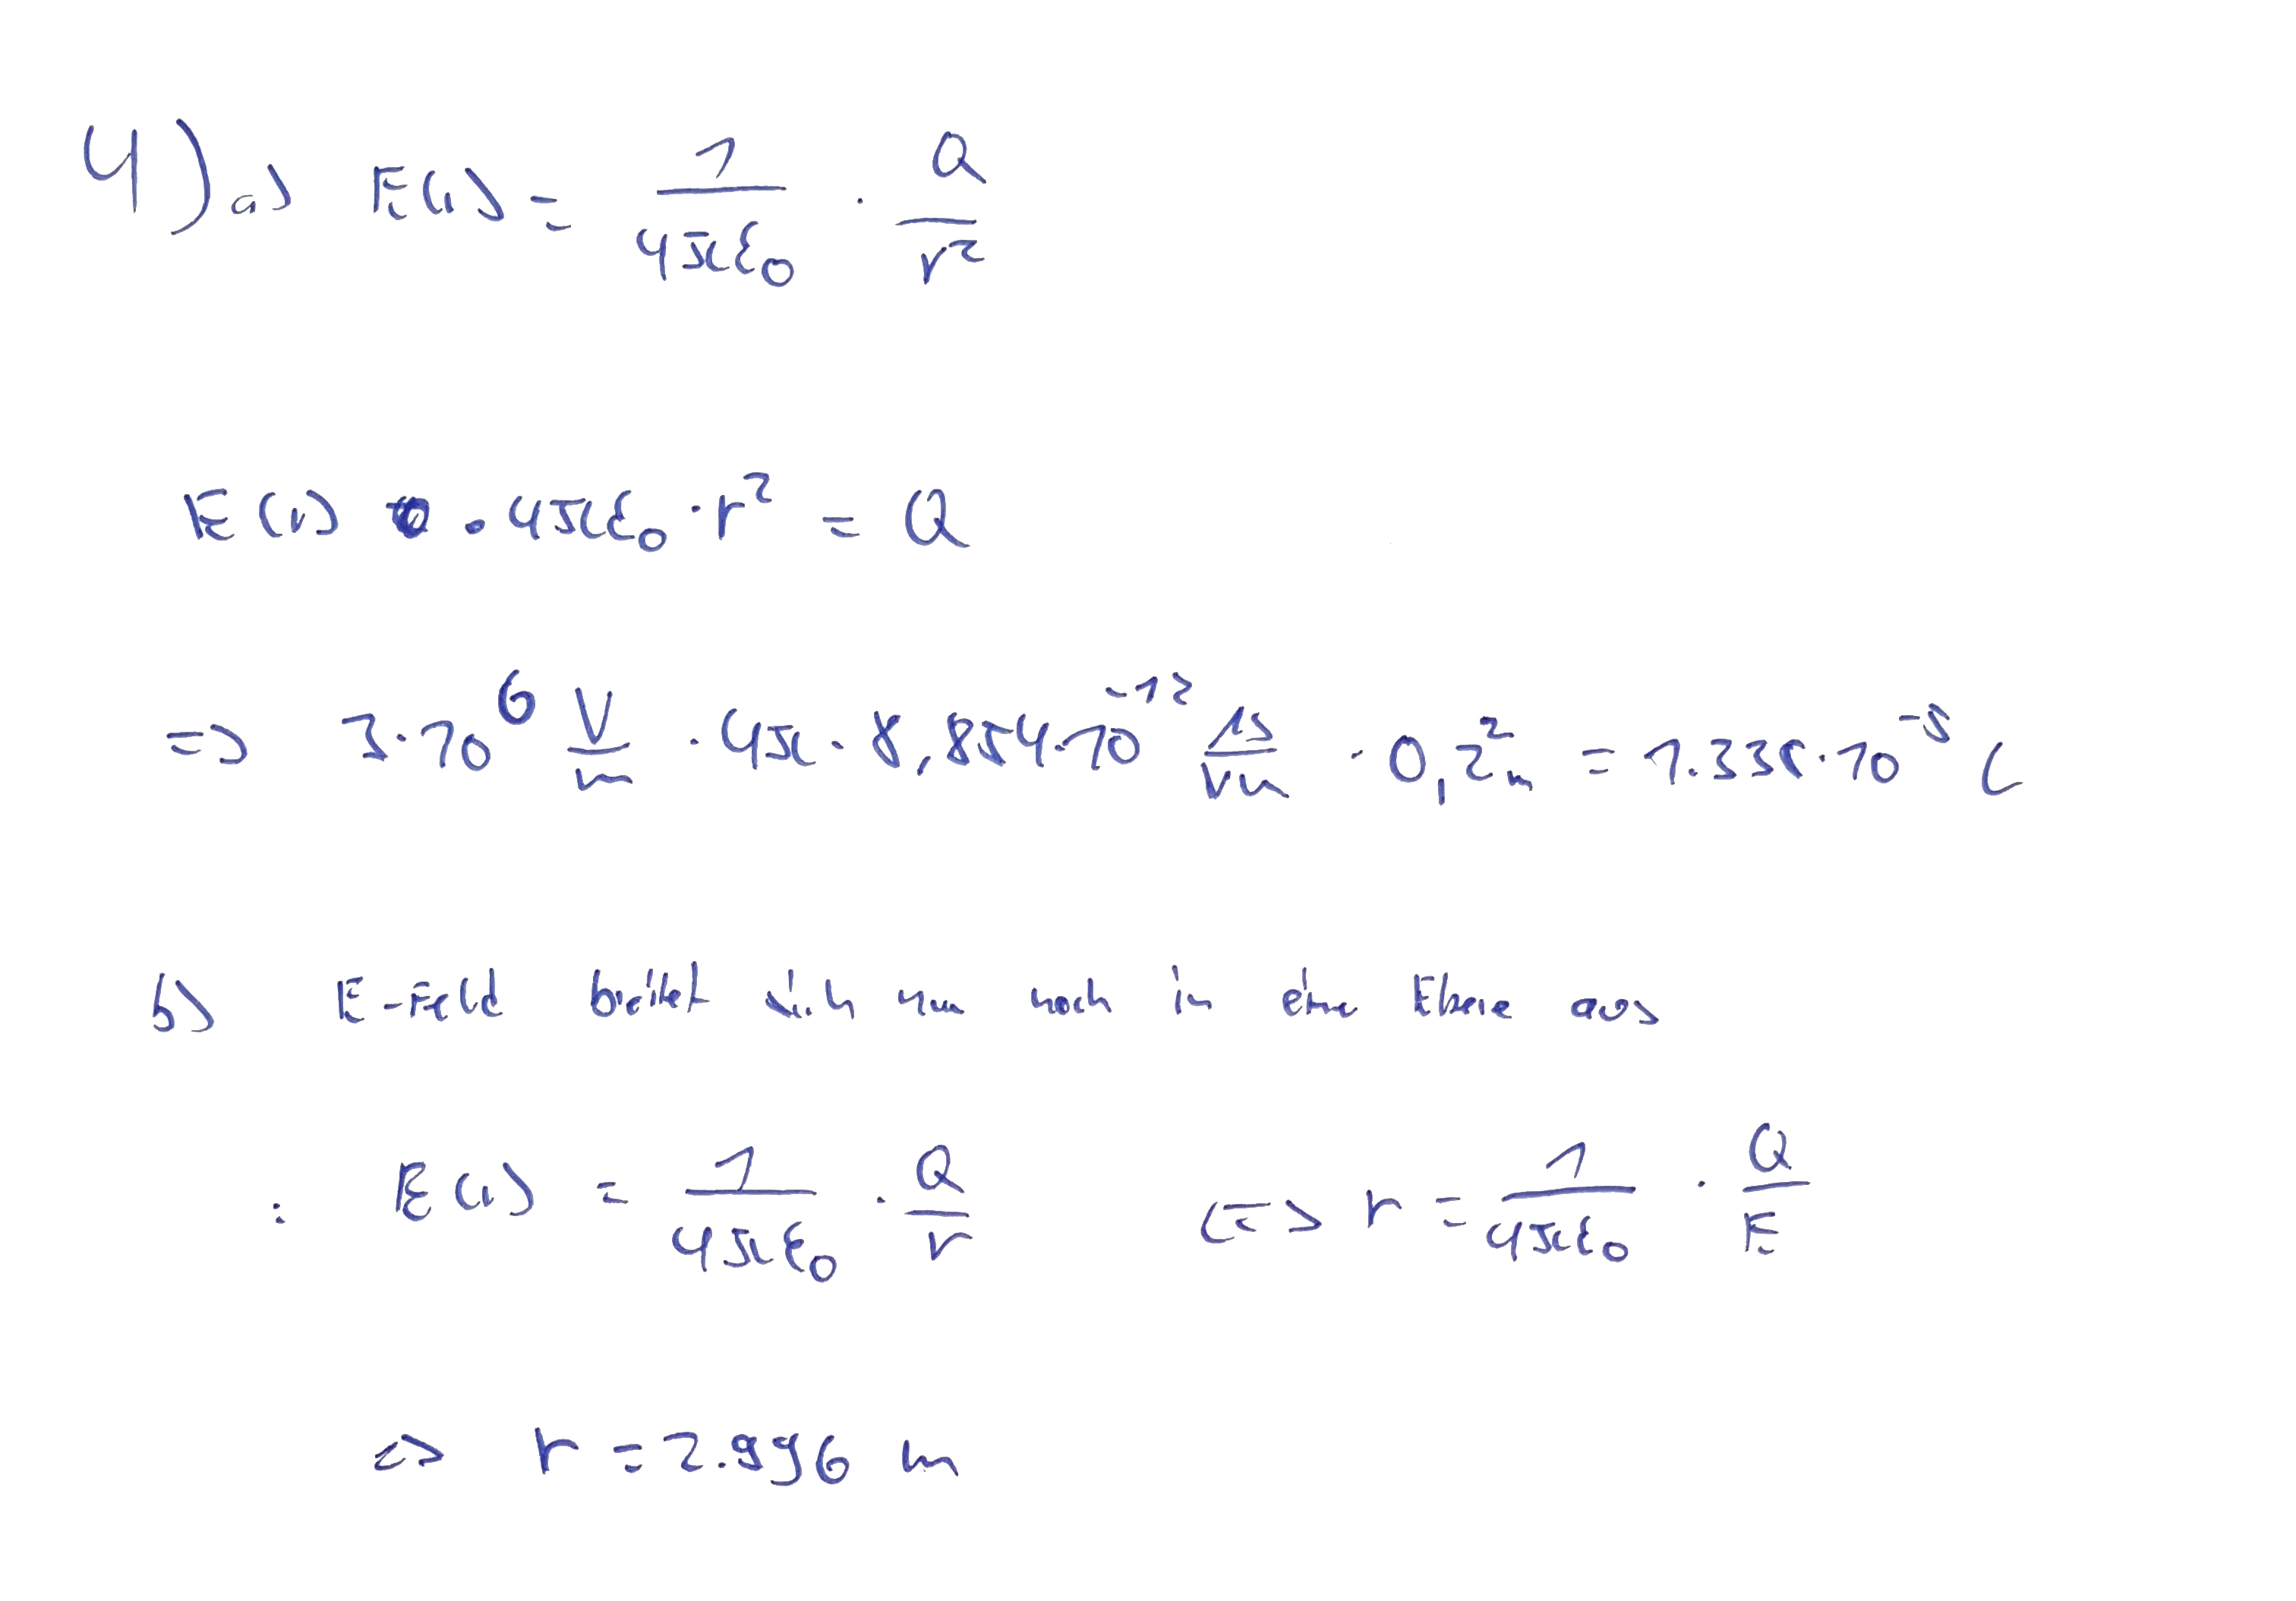 4) a) E(r) = 1/(4πε₀) · Q/r²
E(r) · 4πε₀ · r² = Q
=> 3·10⁶ V/m · 4π · 8,854·10⁻¹² As/Vm · 0,2²m = 1.335·10⁻⁵ C
b) E-Feld breitet sich nun noch in eine Ebene aus
: E(r) = 1/(4πε₀) · Q/r <=> r = 1/(4πε₀) · Q/E
=> r = 2.996 m